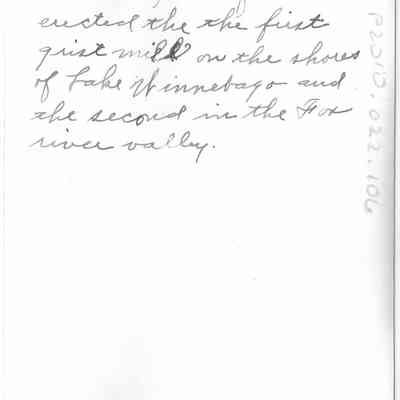 erected the the first
grist mill on the shores
of Lake Winnebago and
the second in the Fox
river valley.
P2010.022.106